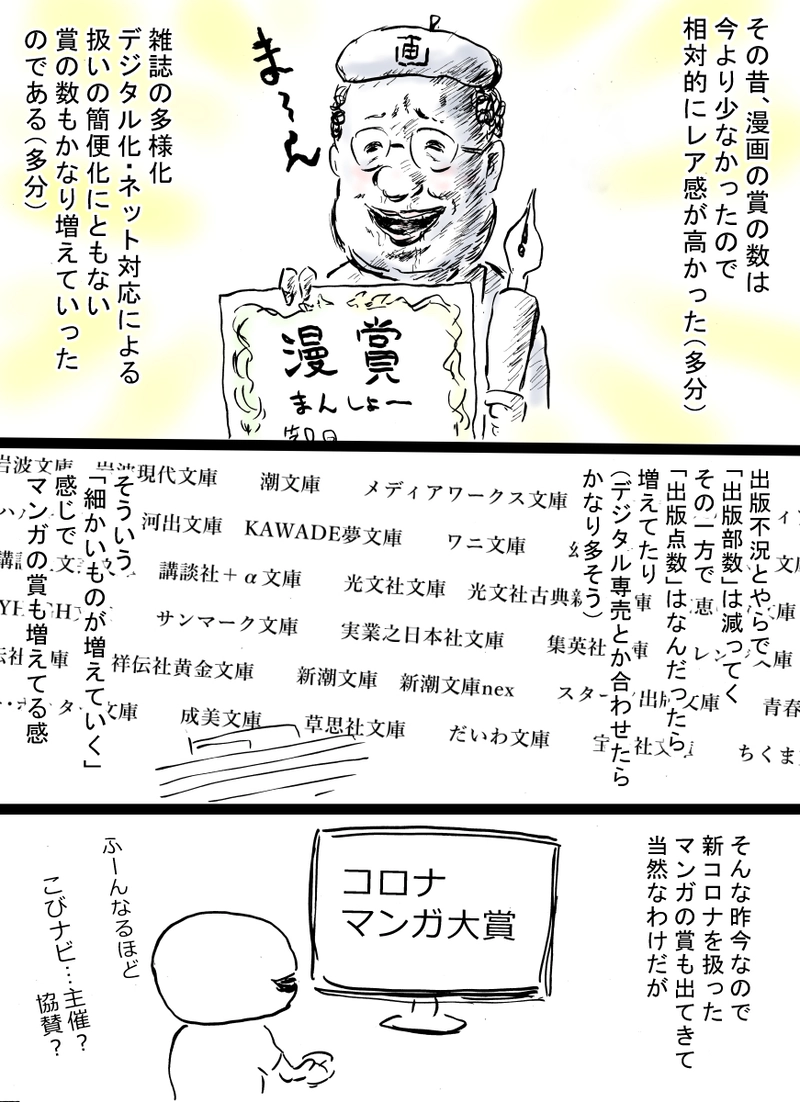 その昔、漫画の賞の数は
今より少なかったので
相対的にレア感が高かった(多分)
画
まーん
漫賞
まんしょー
雑誌の多様化
デジタル化・ネット対応による
扱いの簡便化にともない
賞の数もかなり増えていった
のである(多分)
出版不況とやらで
「出版部数」は減ってく
その一方で
「出版点数」はなんだったら
増えてたり
(デジタル専売とか合わせたら
かなり多そう)
岩波文庫
岩波現代文庫
潮文庫
メディアワークス文庫
河出文庫
KAWADE夢文庫
ワニ文庫
講談社+α文庫
光文社文庫
光文社古典新
サンマーク文庫
実業之日本社文庫
集英社
祥伝社黄金文庫
新潮文庫
新潮文庫nex
成美文庫
草思社文庫
だいわ文庫
青春
ちくま
そういう
「細かいものが増えていく」
感じで
マンガの賞も増えてる感
そんな昨今なので
新コロナを扱った
マンガの賞も出てきて
当然なわけだが
コロナ
マンガ大賞
ふーんなるほど
こびナビ…主催?
協賛?